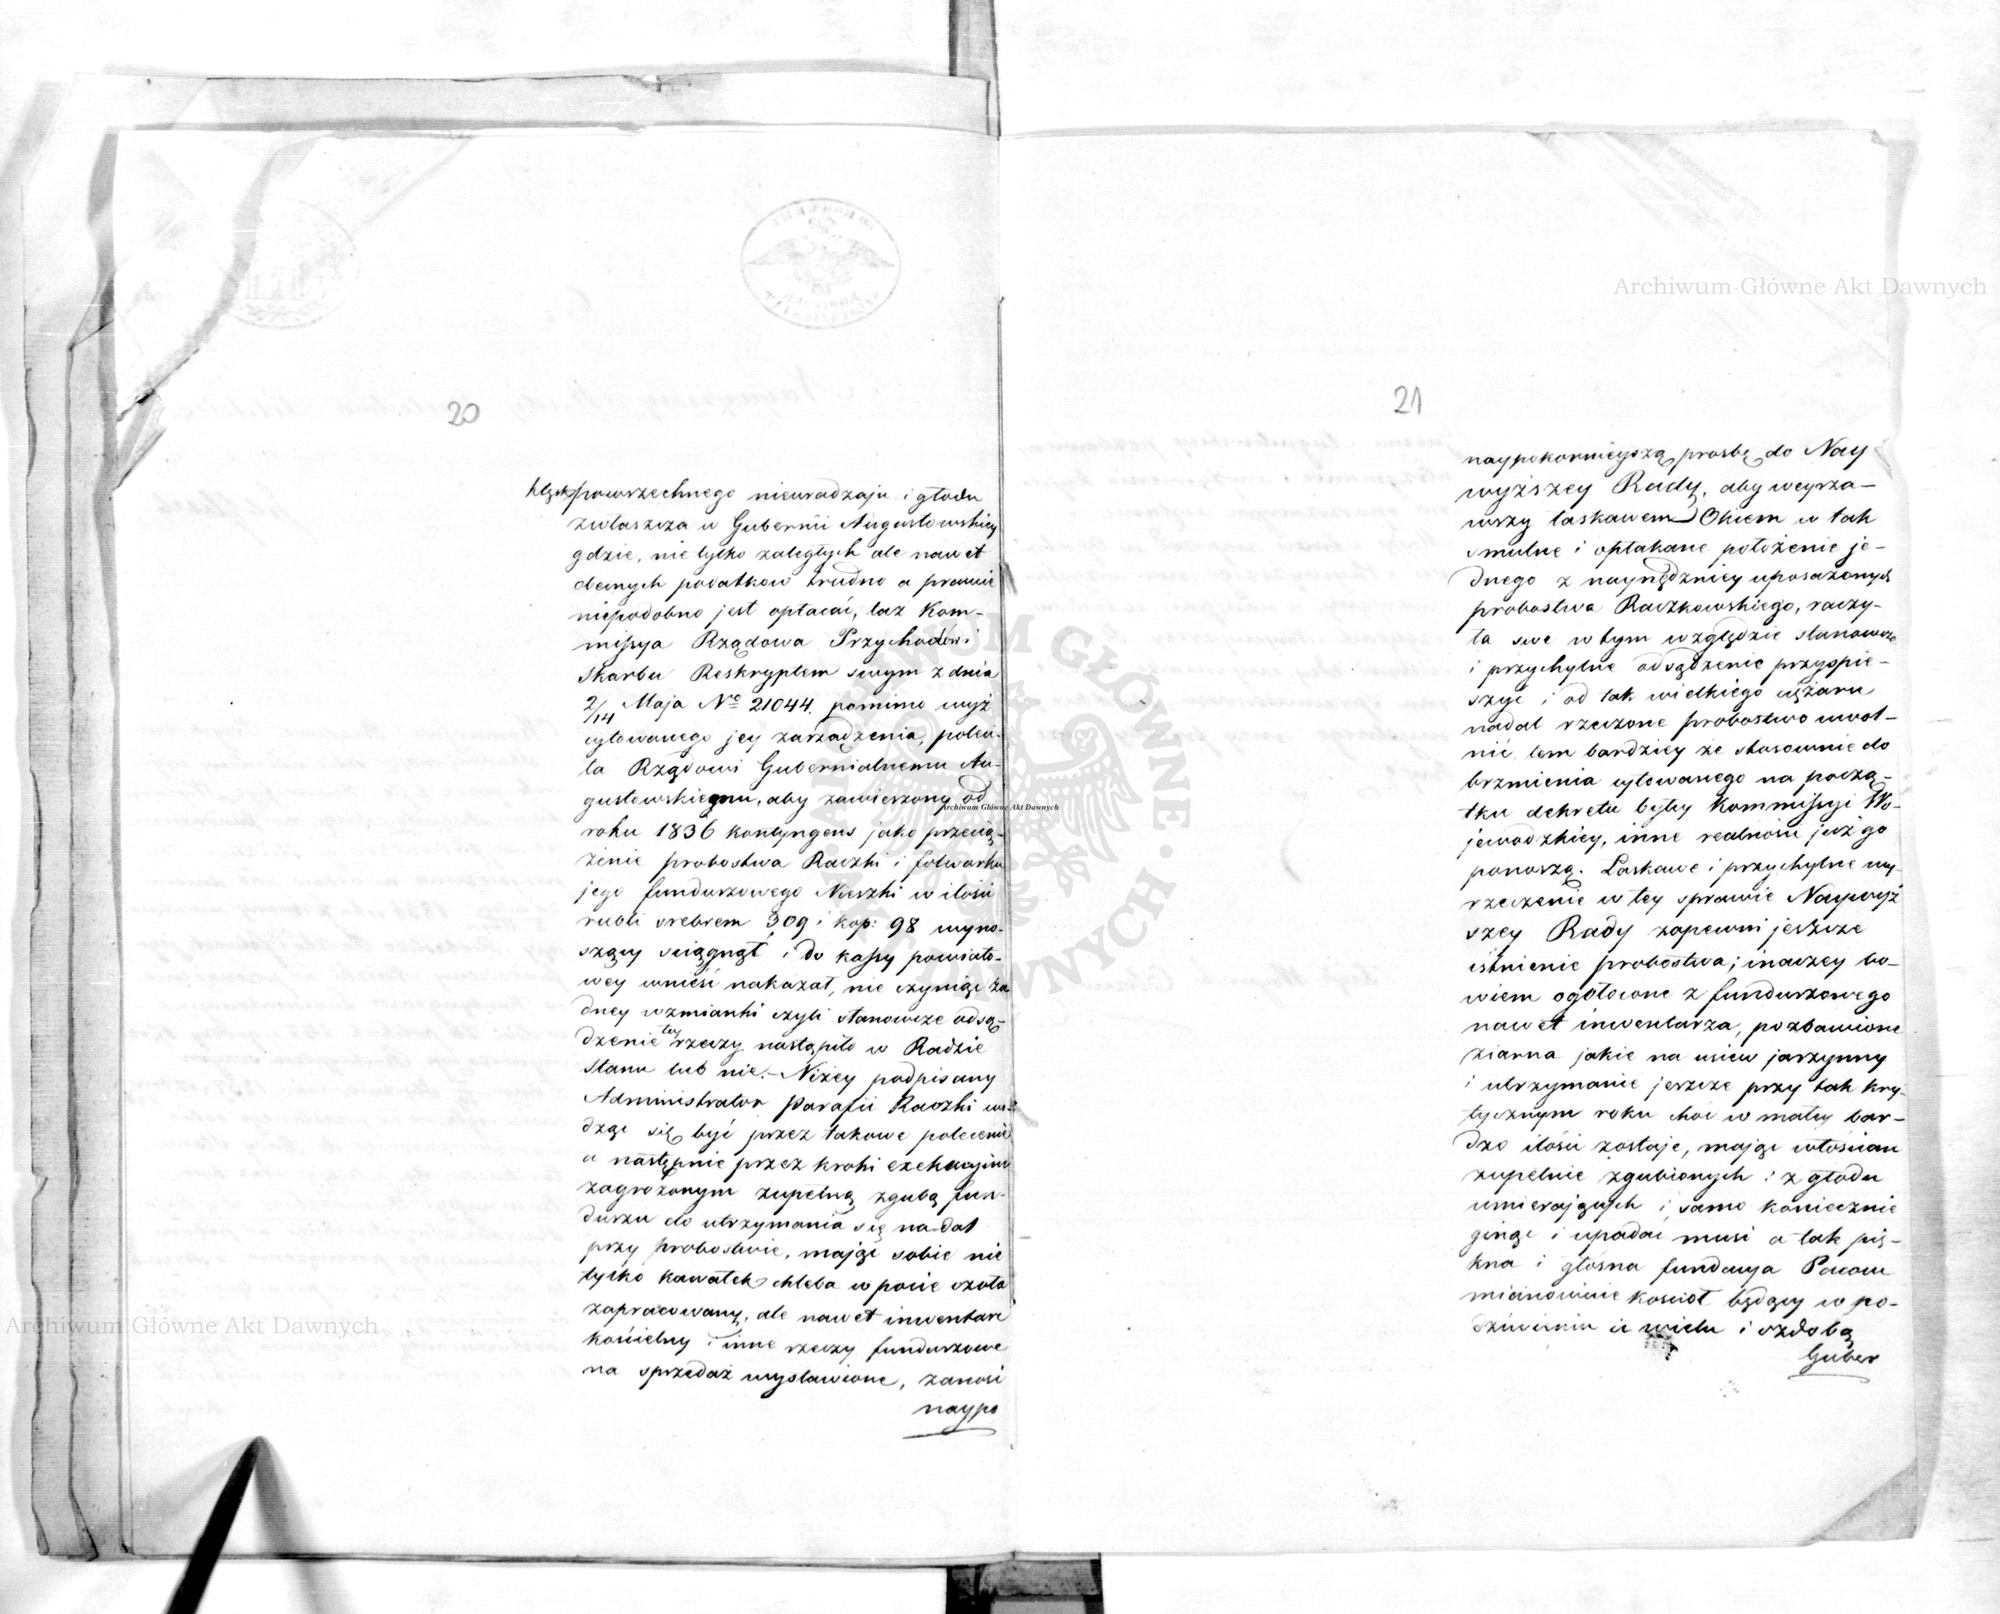 20
klęsk powszechnego nieuradzaju i głodu
zwłaszcza w Gubernii Augustowskiey
gdzie, nie tylko zaległych ale nawet
obecnych podatkow trudno a prawie
niepodobno jest opłacać, taż Kom-
missya Rządowa Przychodów i
Skarbu Reskryptem swym z dnia
2/14 Maja No 21044. pomimo wyż
cytowanego jey zarządzenia, poleci-
ła Rządowi Gubernialnemu Au-
gustowskiemu, aby zawieszony od
roku 1836 kontyngens jako przecią-
żenie probostwa Raczki i folwarku
jego funduszowego Nieszki w ilości
rubli srebrem 309 i kop: 98 wyno-
szący ściągnął i do kassy powiato-
wey wnieść nakazał, nie czyniąc ża
dney wzmianki czyli stanowcze odsą-
dzenie tey rzeczy nastąpiło w Radzie
Stanu lub nie. – Niżey podpisany
Administrator Parafii Raczki wi-
dząc się być przez takowe polecenie
a następnie przez kroki exekucyjne
zagrożonym zupełną zgubą fun-
duszu do utrzymania się nadal
przy probostwie, mając sobie nie
tylko kawałek chleba w pocie czoła
zapracowany, ale nawet inwentarz
kościelny i inne rzeczy funduszowe
na sprzedaż wystawione, zanosi
naypo
21
naypokornieyszą prosbę do Nay
wyższey Rady, aby weyrza-
wszy łaskawem Okiem w tak
smutne i opłakane położenie je-
dnego z naynędzniey uposażonych
probostwa Raczkowskiego, raczy-
ła swe w tym względzie stanowcze
i przychylne odsądzenie przyspie-
szyć i od tak wielkiego ciężaru
nadal rzeczone probostwo uwol-
nić tem bardziey że stosownie do
brzmienia cytowanego na począ-
tku dekretu byłey Kommissyi Wo-
jewodzkiey, inne realności już go
ponoszą. Łaskawe i przychylne wy-
rzeczenie w tey sprawie Naywyż
szey Rady zapewni jeszcze
istnienie probostwa; inaczey bo-
wiem ogołocone z funduszowego
nawet inwentarza, pozbawione
ziarna jakie na usiew jarzynny
i utrzymanie jeszcze przy tak kry-
tycznym roku choć w małey bar-
dzo ilości zostaje, mając włościan
zupełnie zgubionych i z głodu
umierających i samo koniecznie
ginąć i upadać musi a tak pię-
kna i głośna fundacya Pacow
mianowicie kosciół będący w po-
dziwieniu u wielu i ozdobą
Guber
Archiwum Główne Akt Dawnych
Archiwum Główne Akt Dawnych
Archiwum Główne Akt Dawnych